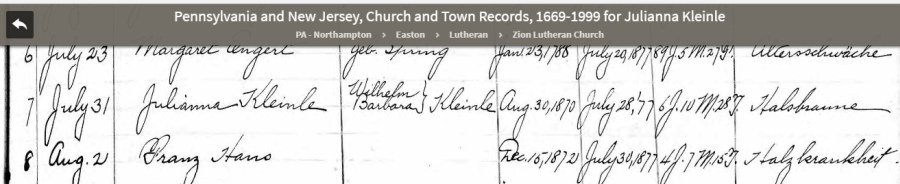 Pennsylvania and New Jersey, Church and Town Records, 1669-1999 for Julianna Kleinle
PA - Northampton > Easton > Lutheran > Zion Lutheran Church
6 July 23 Margaret Engert geb. Spring Jan. 23, 1788 July 20, 1877 89 J. 5 M. 27 T. Altersschwäche
7 July 31 Julianna Kleinle Wilhelm Barbara } Kleinle Aug. 30, 1870 July 28, '77 6 J. 10 M. 28 T. Halsbraune
8 Aug. 2 Franz Hans Dec. 15, 1872 July 30, 1877 4 J. 7 M. 15 T. Halzkrankheit.